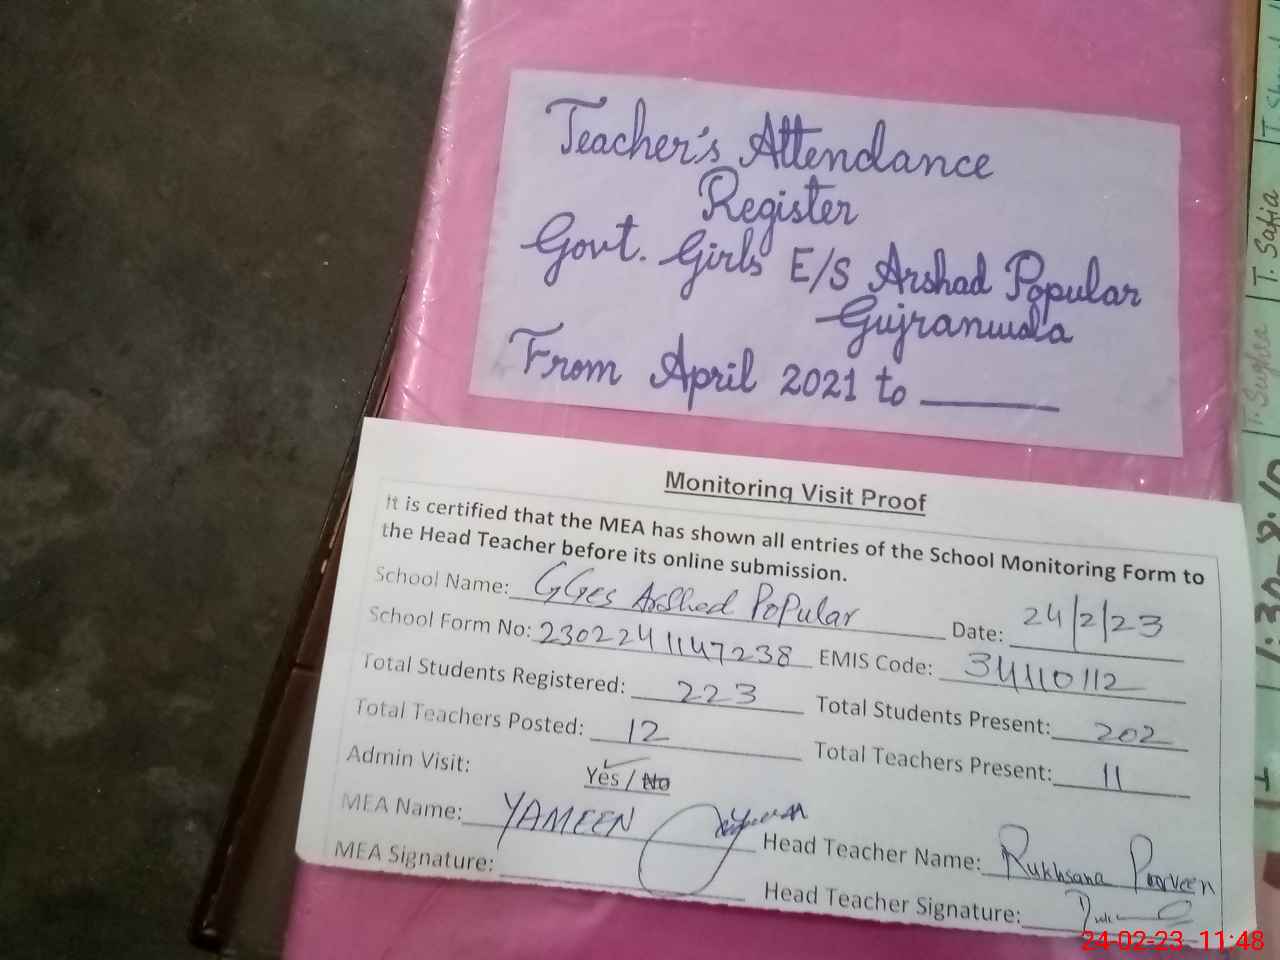 Teacher's Attendance
Register
Govt. Girls E/S Arshad Popular
Gujranwala
From April 2021 to ______
Monitoring Visit Proof
It is certified that the MEA has shown all entries of the School Monitoring Form to
the Head Teacher before its online submission.
School Name: GGES Arshed Popular Date: 24/2/23
School Form No: 2302241147238 EMIS Code: 34110112
Total Students Registered: 223 Total Students Present: 202
Total Teachers Posted: 12 Total Teachers Present: 11
Admin Visit: Yes / No
MEA Name: YAMEEN Head Teacher Name: Rukhsana Parveen
MEA Signature: Head Teacher Signature:
T. Sughra T. Safia
24-02-23 11:48